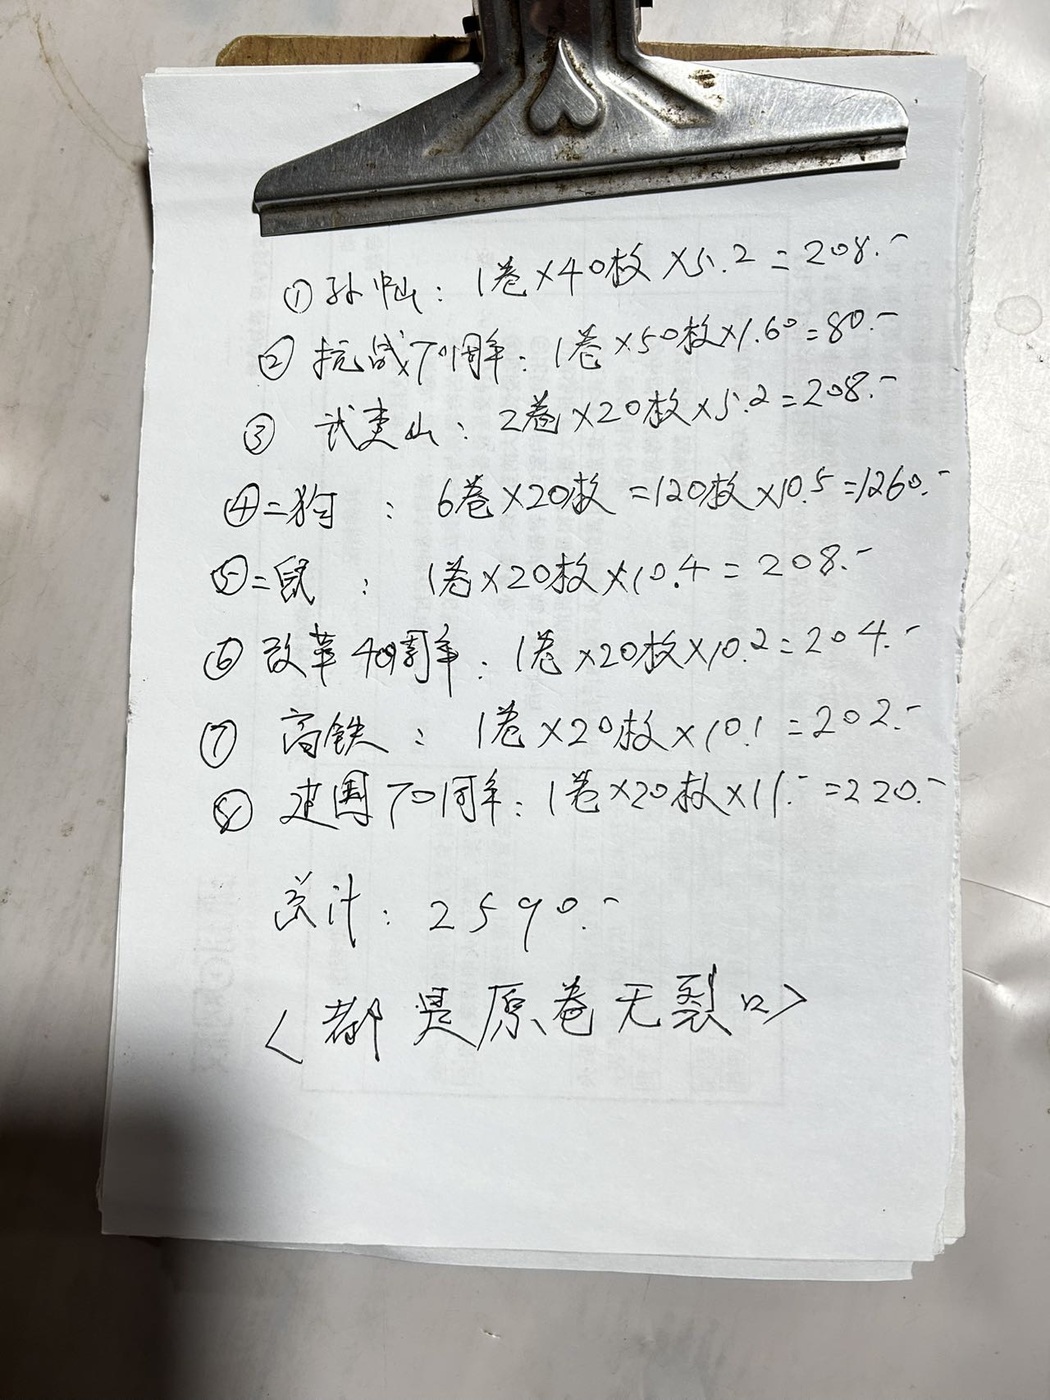 ① 孙中山：1卷×40枚×5.2=208.-
② 抗战70周年：1卷×50枚×1.60=80.-
③ 武夷山：2卷×20枚×5.2=208.-
④二狗：6卷×20枚=120枚×10.5=1260.-
⑤二鼠：1卷×20枚×10.4=208.-
⑥改革40周年：1卷×20枚×10.2=204.-
⑦高铁：1卷×20枚×10.1=202.-
⑧建国70周年：1卷×20枚×11.-=220.-
总计：2590.-
<都是原卷无裂口>